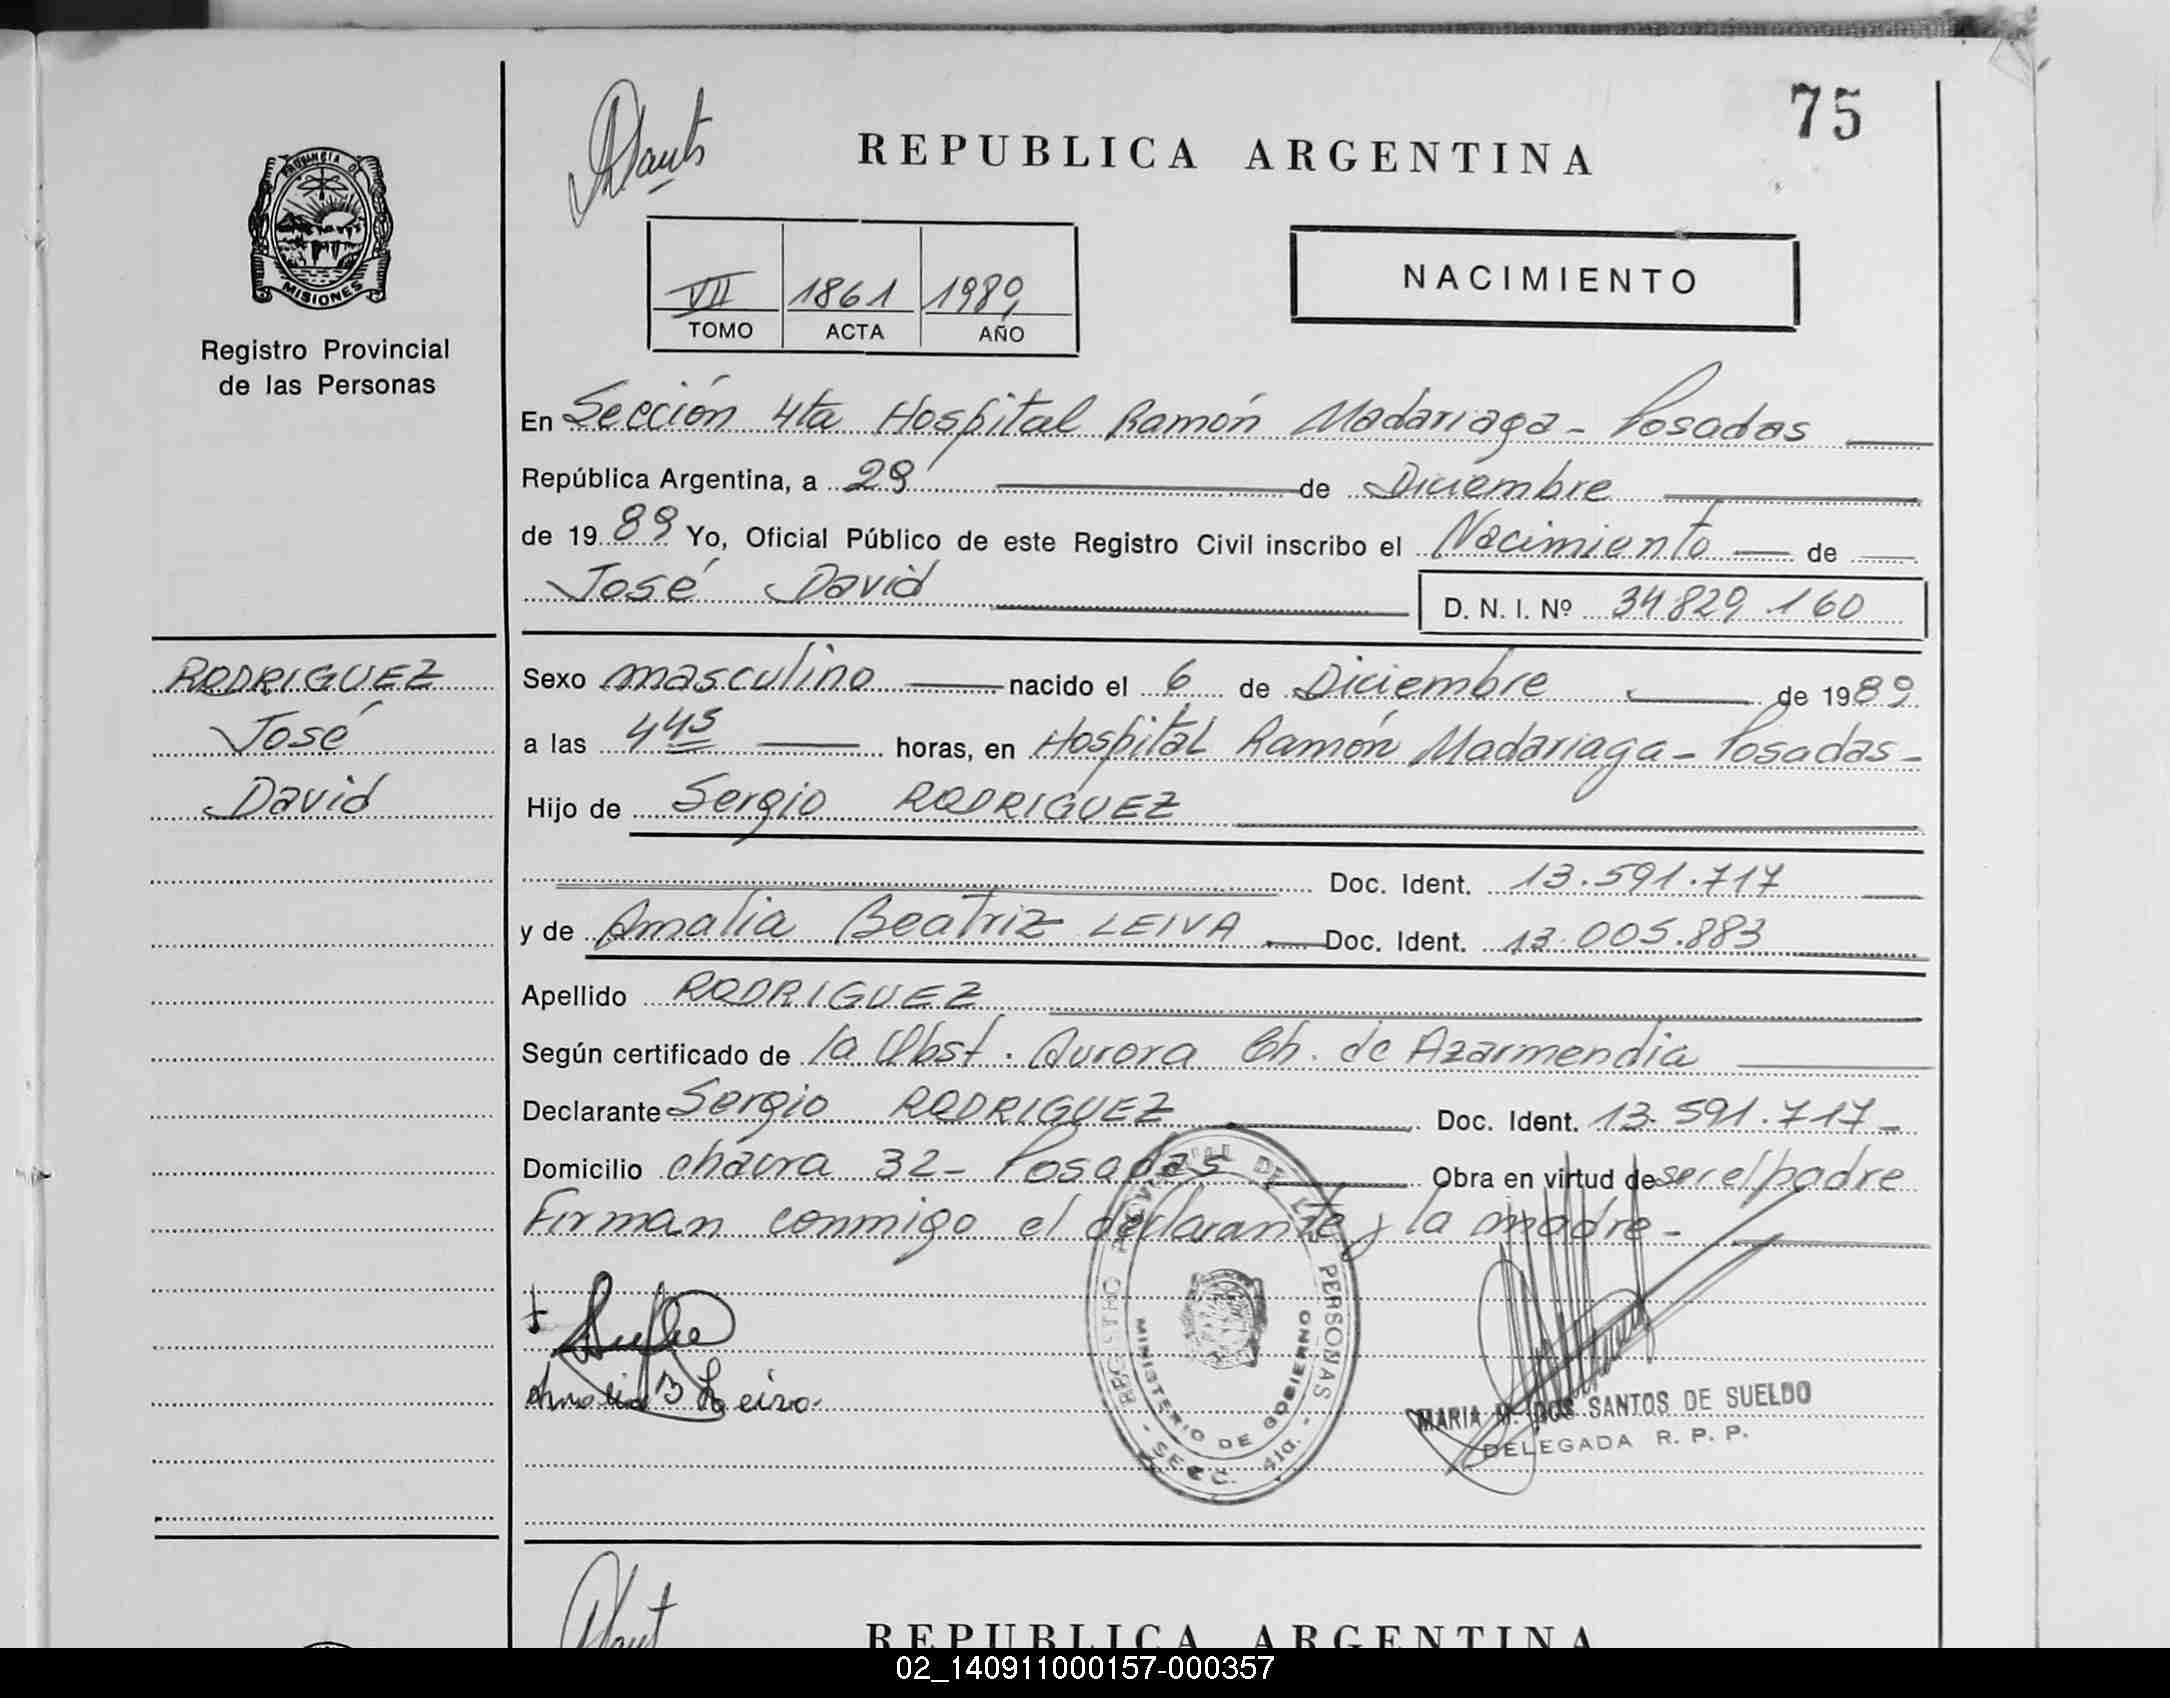 75
REPUBLICA ARGENTINA
PROVINCIA DE
MISIONES
Registro Provincial
de las Personas
VII 1861 1989
TOMO ACTA AÑO
NACIMIENTO
En Sección 4ta Hospital Ramón Madariaga - Posadas
República Argentina, a 29 de Diciembre
de 1989 Yo, Oficial Público de este Registro Civil inscribo el Nacimiento de
José David D. N. I. Nº 34829160
RODRIGUEZ
José
David
Sexo masculino nacido el 6 de Diciembre de 1989
a las 4 45 horas, en Hospital Ramón Madariaga - Posadas -
Hijo de Sergio RODRIGUEZ
Doc. Ident. 13.591.717
y de Amalia Beatriz LEIVA Doc. Ident. 13.005.883
Apellido RODRIGUEZ
Según certificado de la Obst. Aurora Ch. de Azarmendia
Declarante Sergio RODRIGUEZ Doc. Ident. 13.591.717 -
Domicilio chacra 32 - Posadas Obra en virtud de ser el padre
Firman conmigo el declarante y la madre -
Amalia B Leiva
REGISTRO PROVINCIAL DE LAS PERSONAS
MINISTERIO DE GOBIERNO
- SECC. 4ta. -
MARIA M. DOS SANTOS DE SUELDO
DELEGADA R. P. P.
REPUBLICA ARGENTINA
02_140911000157-000357